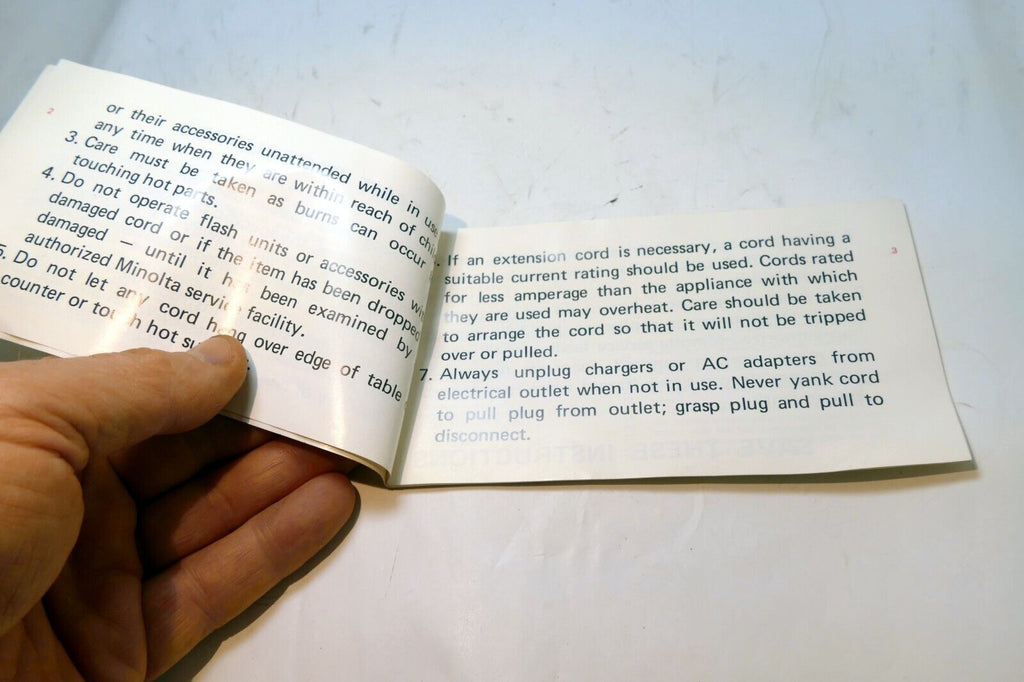 2
or their accessories unattended while in use
any time when they are within reach of chil
3. Care must be taken as burns can occur
touching hot parts.
4. Do not operate flash units or accessories wit
damaged cord or if the item has been dropped
damaged — until it has been examined by
authorized Minolta service facility.
5. Do not let any cord hang over edge of table
counter or touch hot su
3
If an extension cord is necessary, a cord having a
suitable current rating should be used. Cords rated
for less amperage than the appliance with which
they are used may overheat. Care should be taken
to arrange the cord so that it will not be tripped
over or pulled.
7. Always unplug chargers or AC adapters from
electrical outlet when not in use. Never yank cord
to pull plug from outlet; grasp plug and pull to
disconnect.